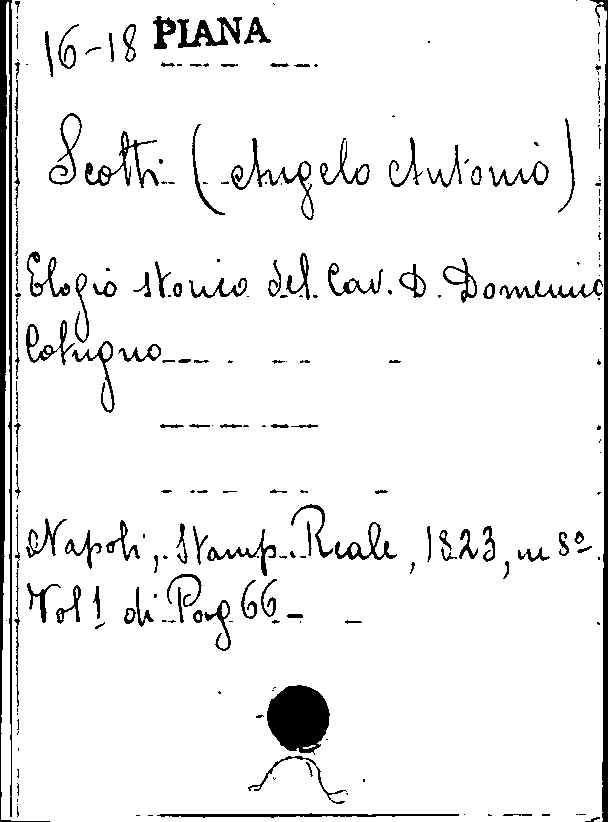 16-18 PIANA
Scotti (Angelo Antonio)
Elogio storico del Cav. D. Domenico
Cotugno
Napoli, Stamp. Reale, 1823, in 8º
Vol 1 di Pag 66